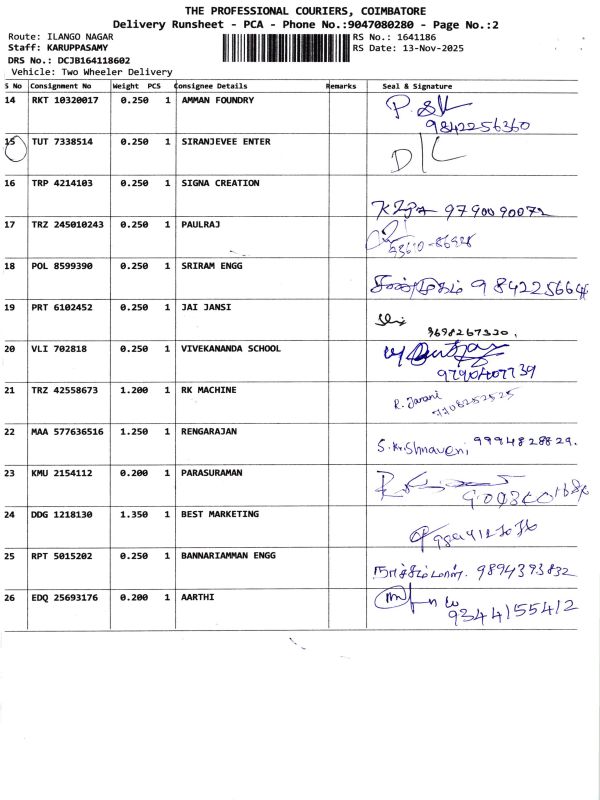 THE PROFESSIONAL COURIERS, COIMBATORE
Delivery Runsheet - PCA - Phone No.:9047080280 - Page No.:2
Route: ILANGO NAGAR RS No.: 1641186
Staff: KARUPPASAMY RS Date: 13-Nov-2025
DRS No.: DCJB164118602
Vehicle: Two Wheeler Delivery
S No Consignment No Weight PCS Consignee Details Remarks Seal & Signature
14 RKT 10320017 0.250 1 AMMAN FOUNDRY
9842256360
15 TUT 7338514 0.250 1 SIRANJEVEE ENTER D/L
16 TRP 4214103 0.250 1 SIGNA CREATION
9790090072
17 TRZ 245010243 0.250 1 PAULRAJ
18 POL 8599390 0.250 1 SRIRAM ENGG
சண்முகம் 984225664
19 PRT 6102452 0.250 1 JAI JANSI
20 VLI 702818 0.250 1 VIVEKANANDA SCHOOL
21 TRZ 42558673 1.200 1 RK MACHINE
R. Jarani
22 MAA 577636516 1.250 1 RENGARAJAN
S. Krishnaveni, 9994828829.
23 KMU 2154112 0.200 1 PARASURAMAN
24 DDG 1218130 1.350 1 BEST MARKETING
25 RPT 5015202 0.250 1 BANNARIAMMAN ENGG
9894393832
26 EDQ 25693176 0.200 1 AARTHI
9344155412